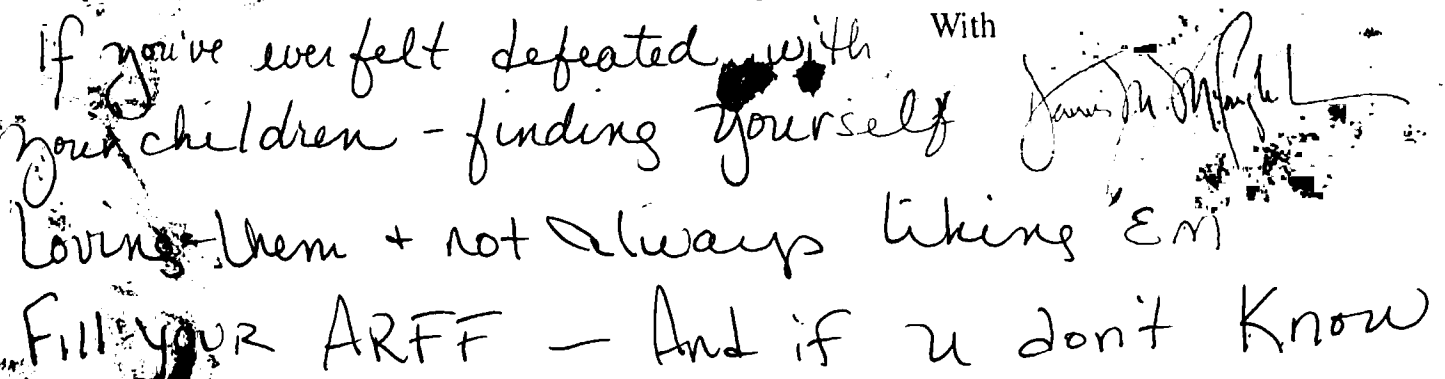 If you've ever felt defeated with
With
your children - finding yourself
Loving them + not always liking 'Em
Fill your ARFF — And if u don't Know